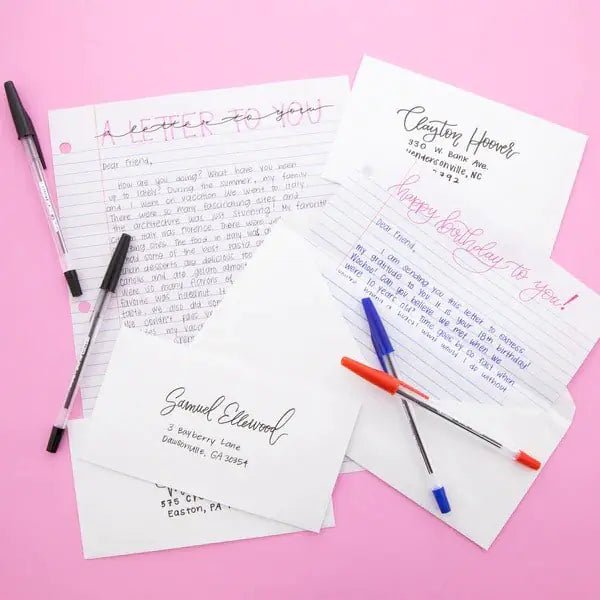 A LETTER TO YOU
a letter to you
Dear Friend,
How are you doing? What have you been
up to lately? During the summer, my family
and I went on vacation. We went to Italy.
There were so many fascinating sites and
the architecture was just stunning! My favorite
was Florence. There were
sites. The food in Italy was
had some of the best pasta
desserts. delicious
cannolis and ate gelato almost
were so many flavors of
favorite was hazelnut. It
taste. We also did some
We couldn't pass
was my vac
Clayton Hoover
330 W. Bank Ave.
Hendersonville, NC
792
happy birthday to you!
Dear Friend,
I am sending you this letter to express
my gratitude to you. It is your 18th birthday!
Woohoo! Can you believe we met when we
were 10 years old? Time goes by so fast when
what would I do without
Samuel Ellewood
3 Bayberry Lane
Dawsonville, GA 30354
575 C
Easton, PA